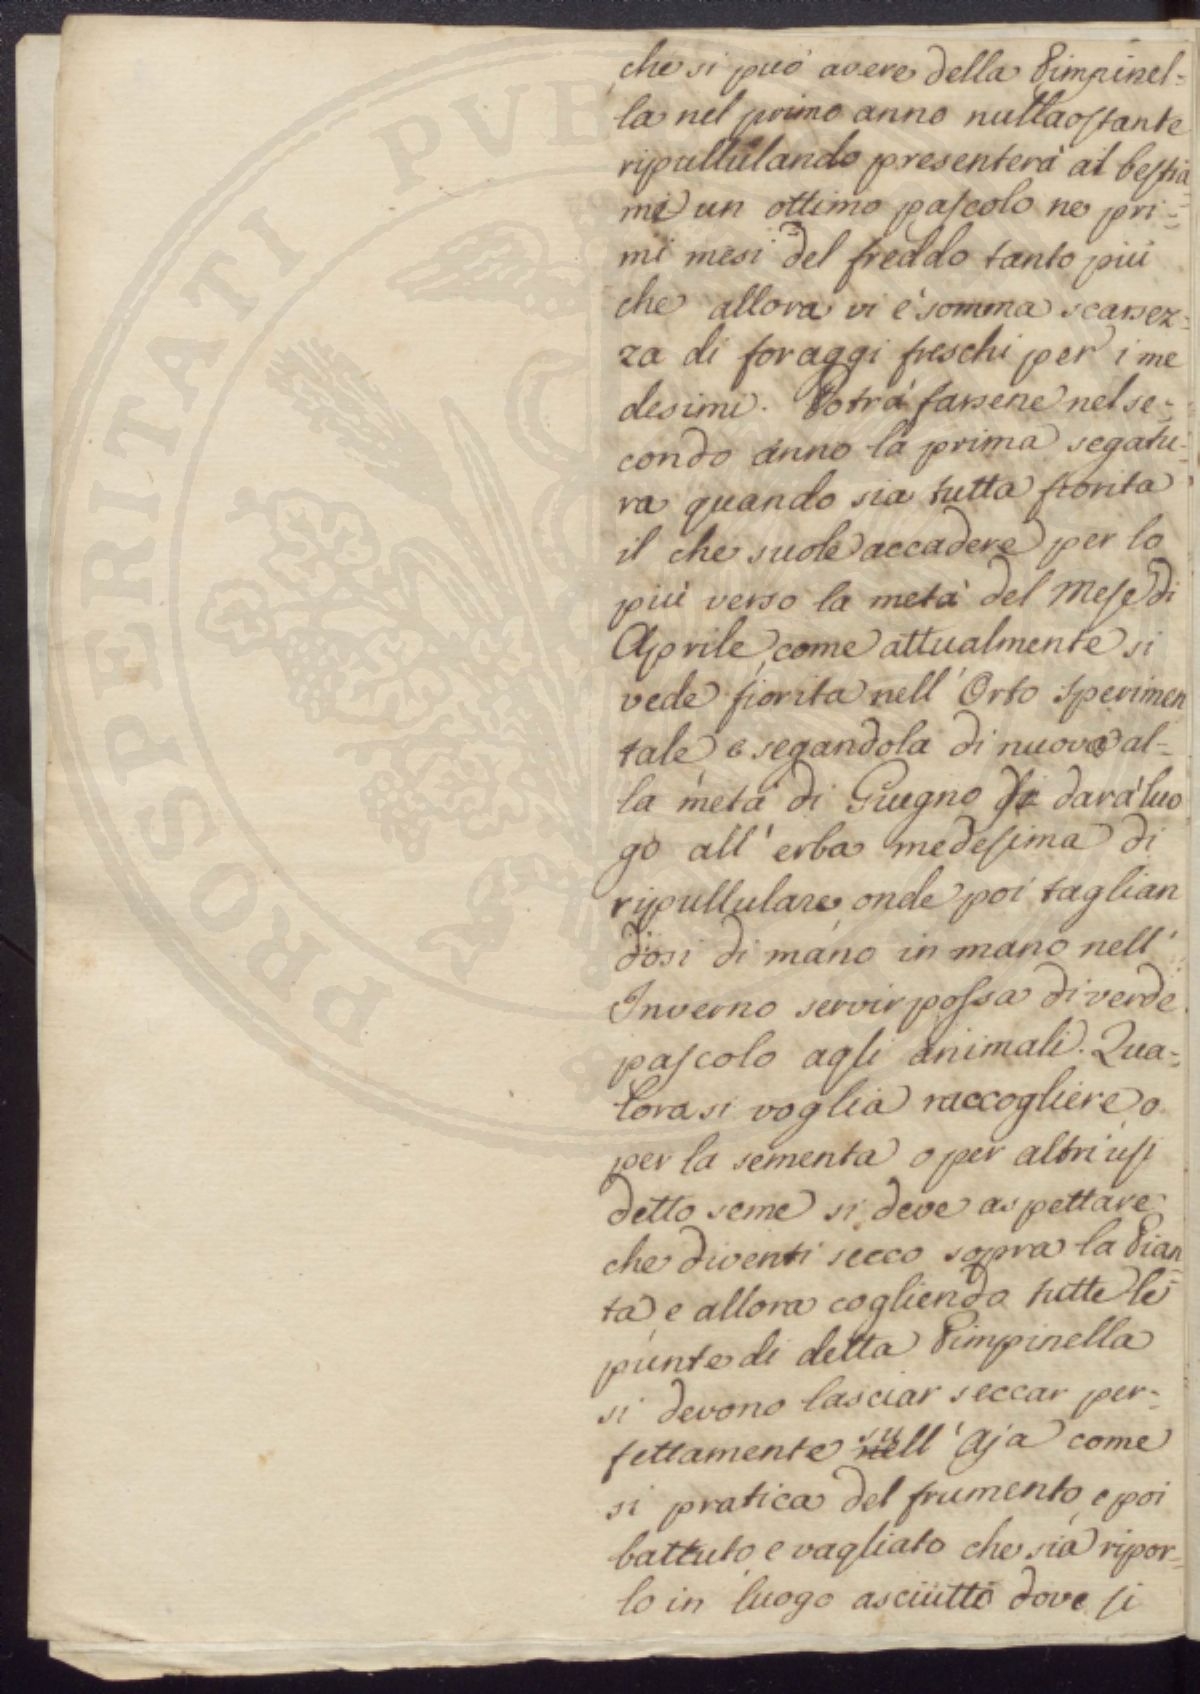 che si può avere della Pimpinel-
la nel primo anno nullaostante
ripullulando presenterà ai bestia-
mi un ottimo pascolo ne pri-
mi mesi del freddo tanto più
che allora vi è somma scarsez-
za di foraggi freschi per i me
desimi. Potrà farsene nel se-
condo anno la prima segatu-
ra quando sia tutta fiorita
il che suole accadere per lo
più verso la metà del Mese di
Aprile, come attualmente si
vede fiorita nell' Orto Sperimen
tale e segandola di nuovo al-
la metà di Giugno si darà luo
go all' erba medesima di
ripullulare, onde poi taglian
dosi di mano in mano nell'
Inverno servir possa di verde
pascolo agli animali. Qua-
lora si voglia raccogliere o
per la sementa o per altri usi
detto seme si deve aspettare
che diventi secco sopra la Pian
ta, e allora cogliendo tutte le
punte di detta Pimpinella
si devono lasciar seccar per-
fettamente sull' Aja come
si pratica del frumento, e poi
battuto, e vagliato che sia ripor-
lo in luogo asciutto dove si
PROSPERITATI PVB